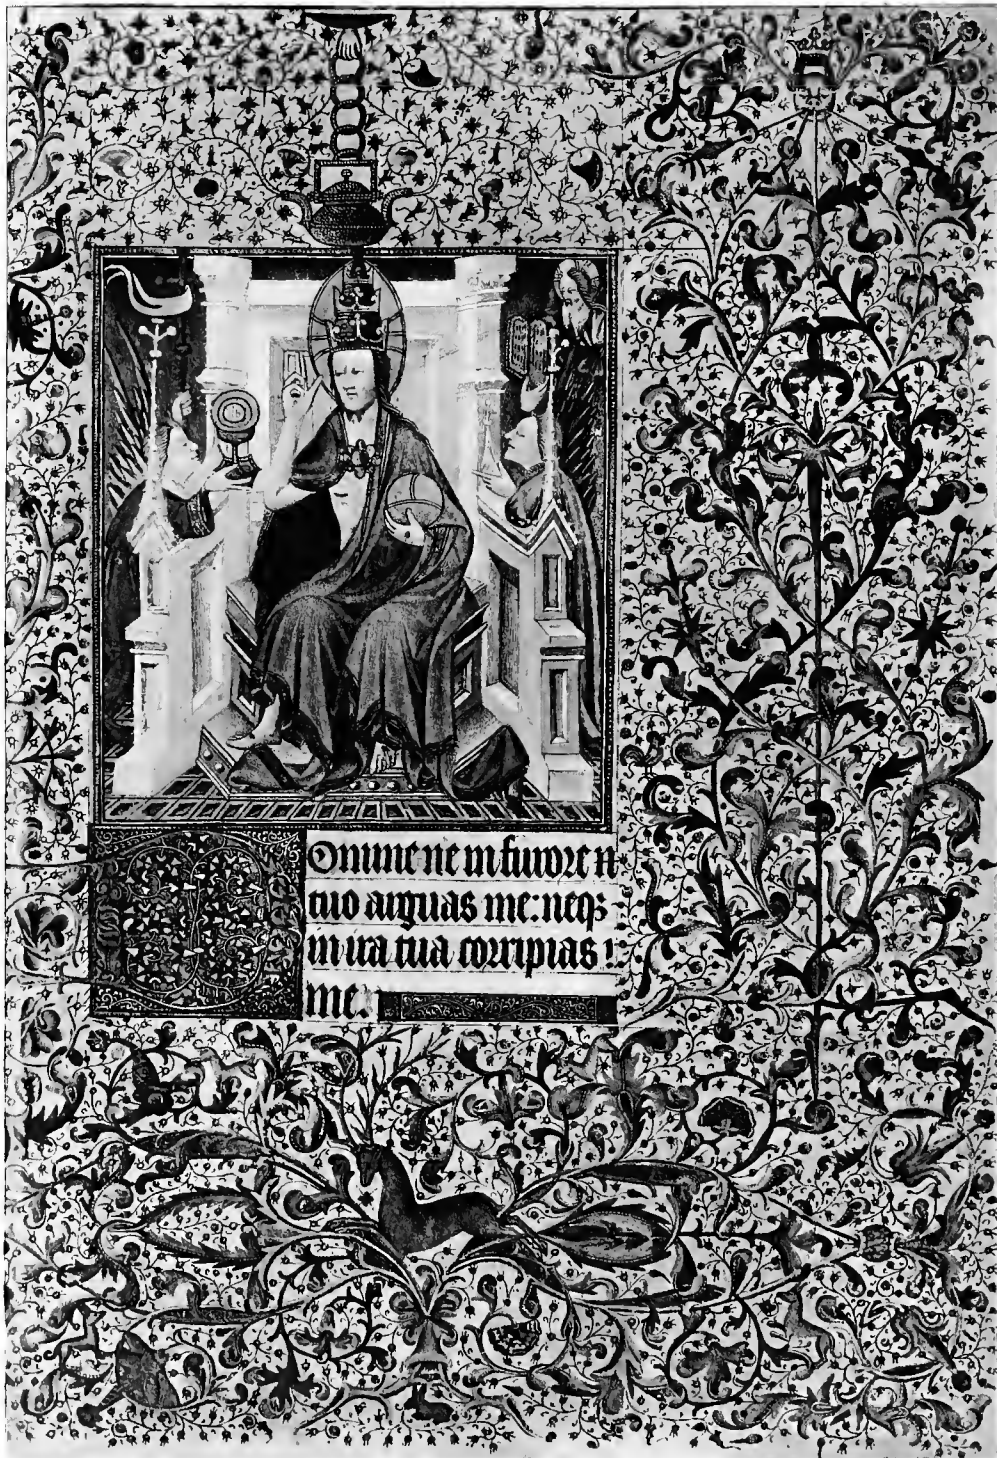 Domine ne in furore
tuo arguas me: neqȝ
in ira tua corripias
me.